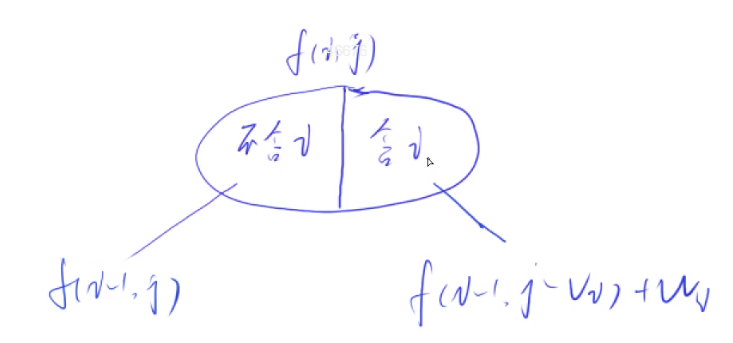 f(i,j)
不含i
含i
f(i-1,j)
f(i-1,j-vi)+wi